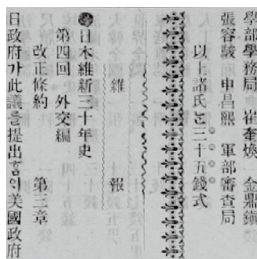 學部學務局 崔奎煥 金鼎鎭
張容駿 申昌熙 軍部審査局
以上諸氏と三十五錢式
雜報
日本維新三十年史
第四回 外交編
改正條約 第三章
日政府가此議를提出ᄒᆞ이美國政府